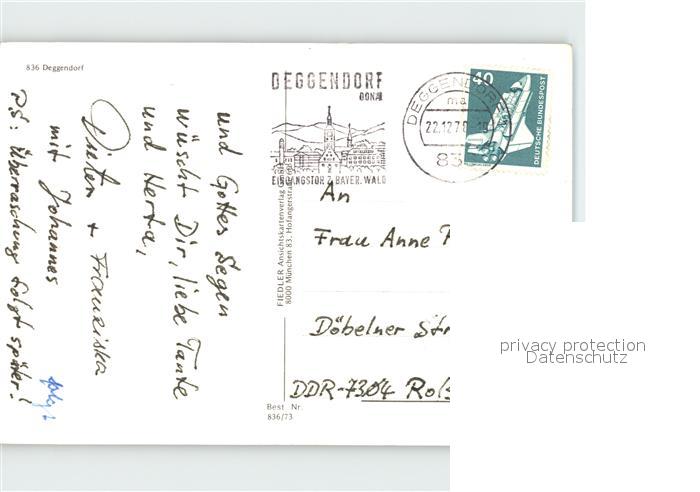 836 Deggendorf
und Gottes Segen
wünscht Dir, liebe Tante
und Herta,
Dieter + Franziska
mit Johannes
P.S: Überraschung folgt später!
folgt
FIEDLER Ansichtskartenverlag GmbH
8000 München 83, Hofangerstraße
Best. Nr.
836/73
DEGGENDORF
DONAU
EINGANGSTOR Z. BAYER. WALD
DEGGENDORF
ma
22.12.79
83
40
DEUTSCHE BUNDESPOST
An
Frau Anne
Döbelner Str
DDR-7304 Roß
privacy protection
Datenschutz